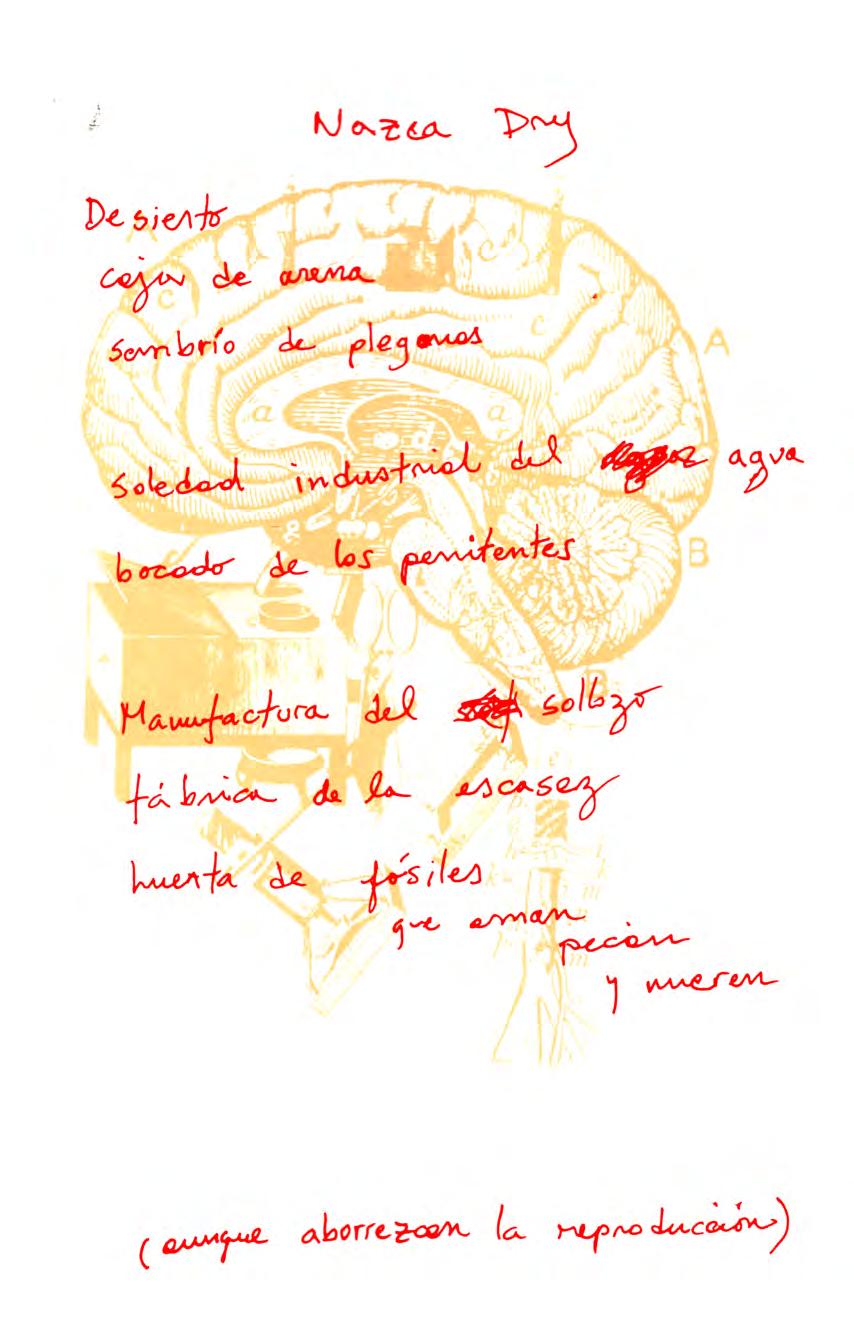 Nazca Dry
Desierto
caja de arena
sembrío de
soledad industrial del agua
bocado de los penitentes
Manufactura del sollozo
fábrica de la escasez
huerta de fósiles
que aman
pecan
y mueren
(aunque aborrezcan la reproducción)
A
B
C
C
c
a
a